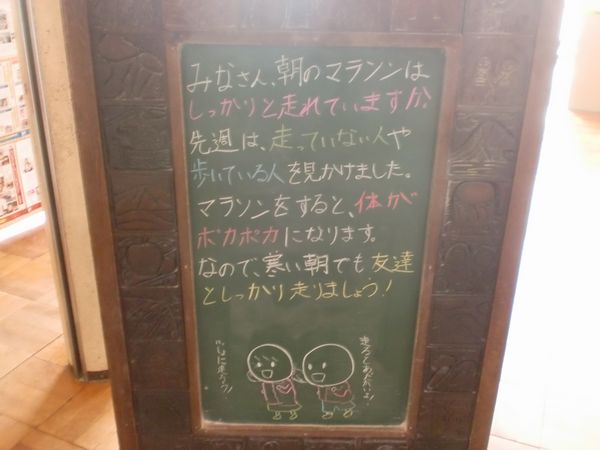 みなさん、朝のマラソンは
しっかりと走れていますか。
先週は、走っていない人や
歩いている人を見かけました。
マラソンをすると、体が
ポカポカになります。
なので、寒い朝でも友達
としっかり走りましょう！
いっしょに走ろう！
走るとあったかいよ！